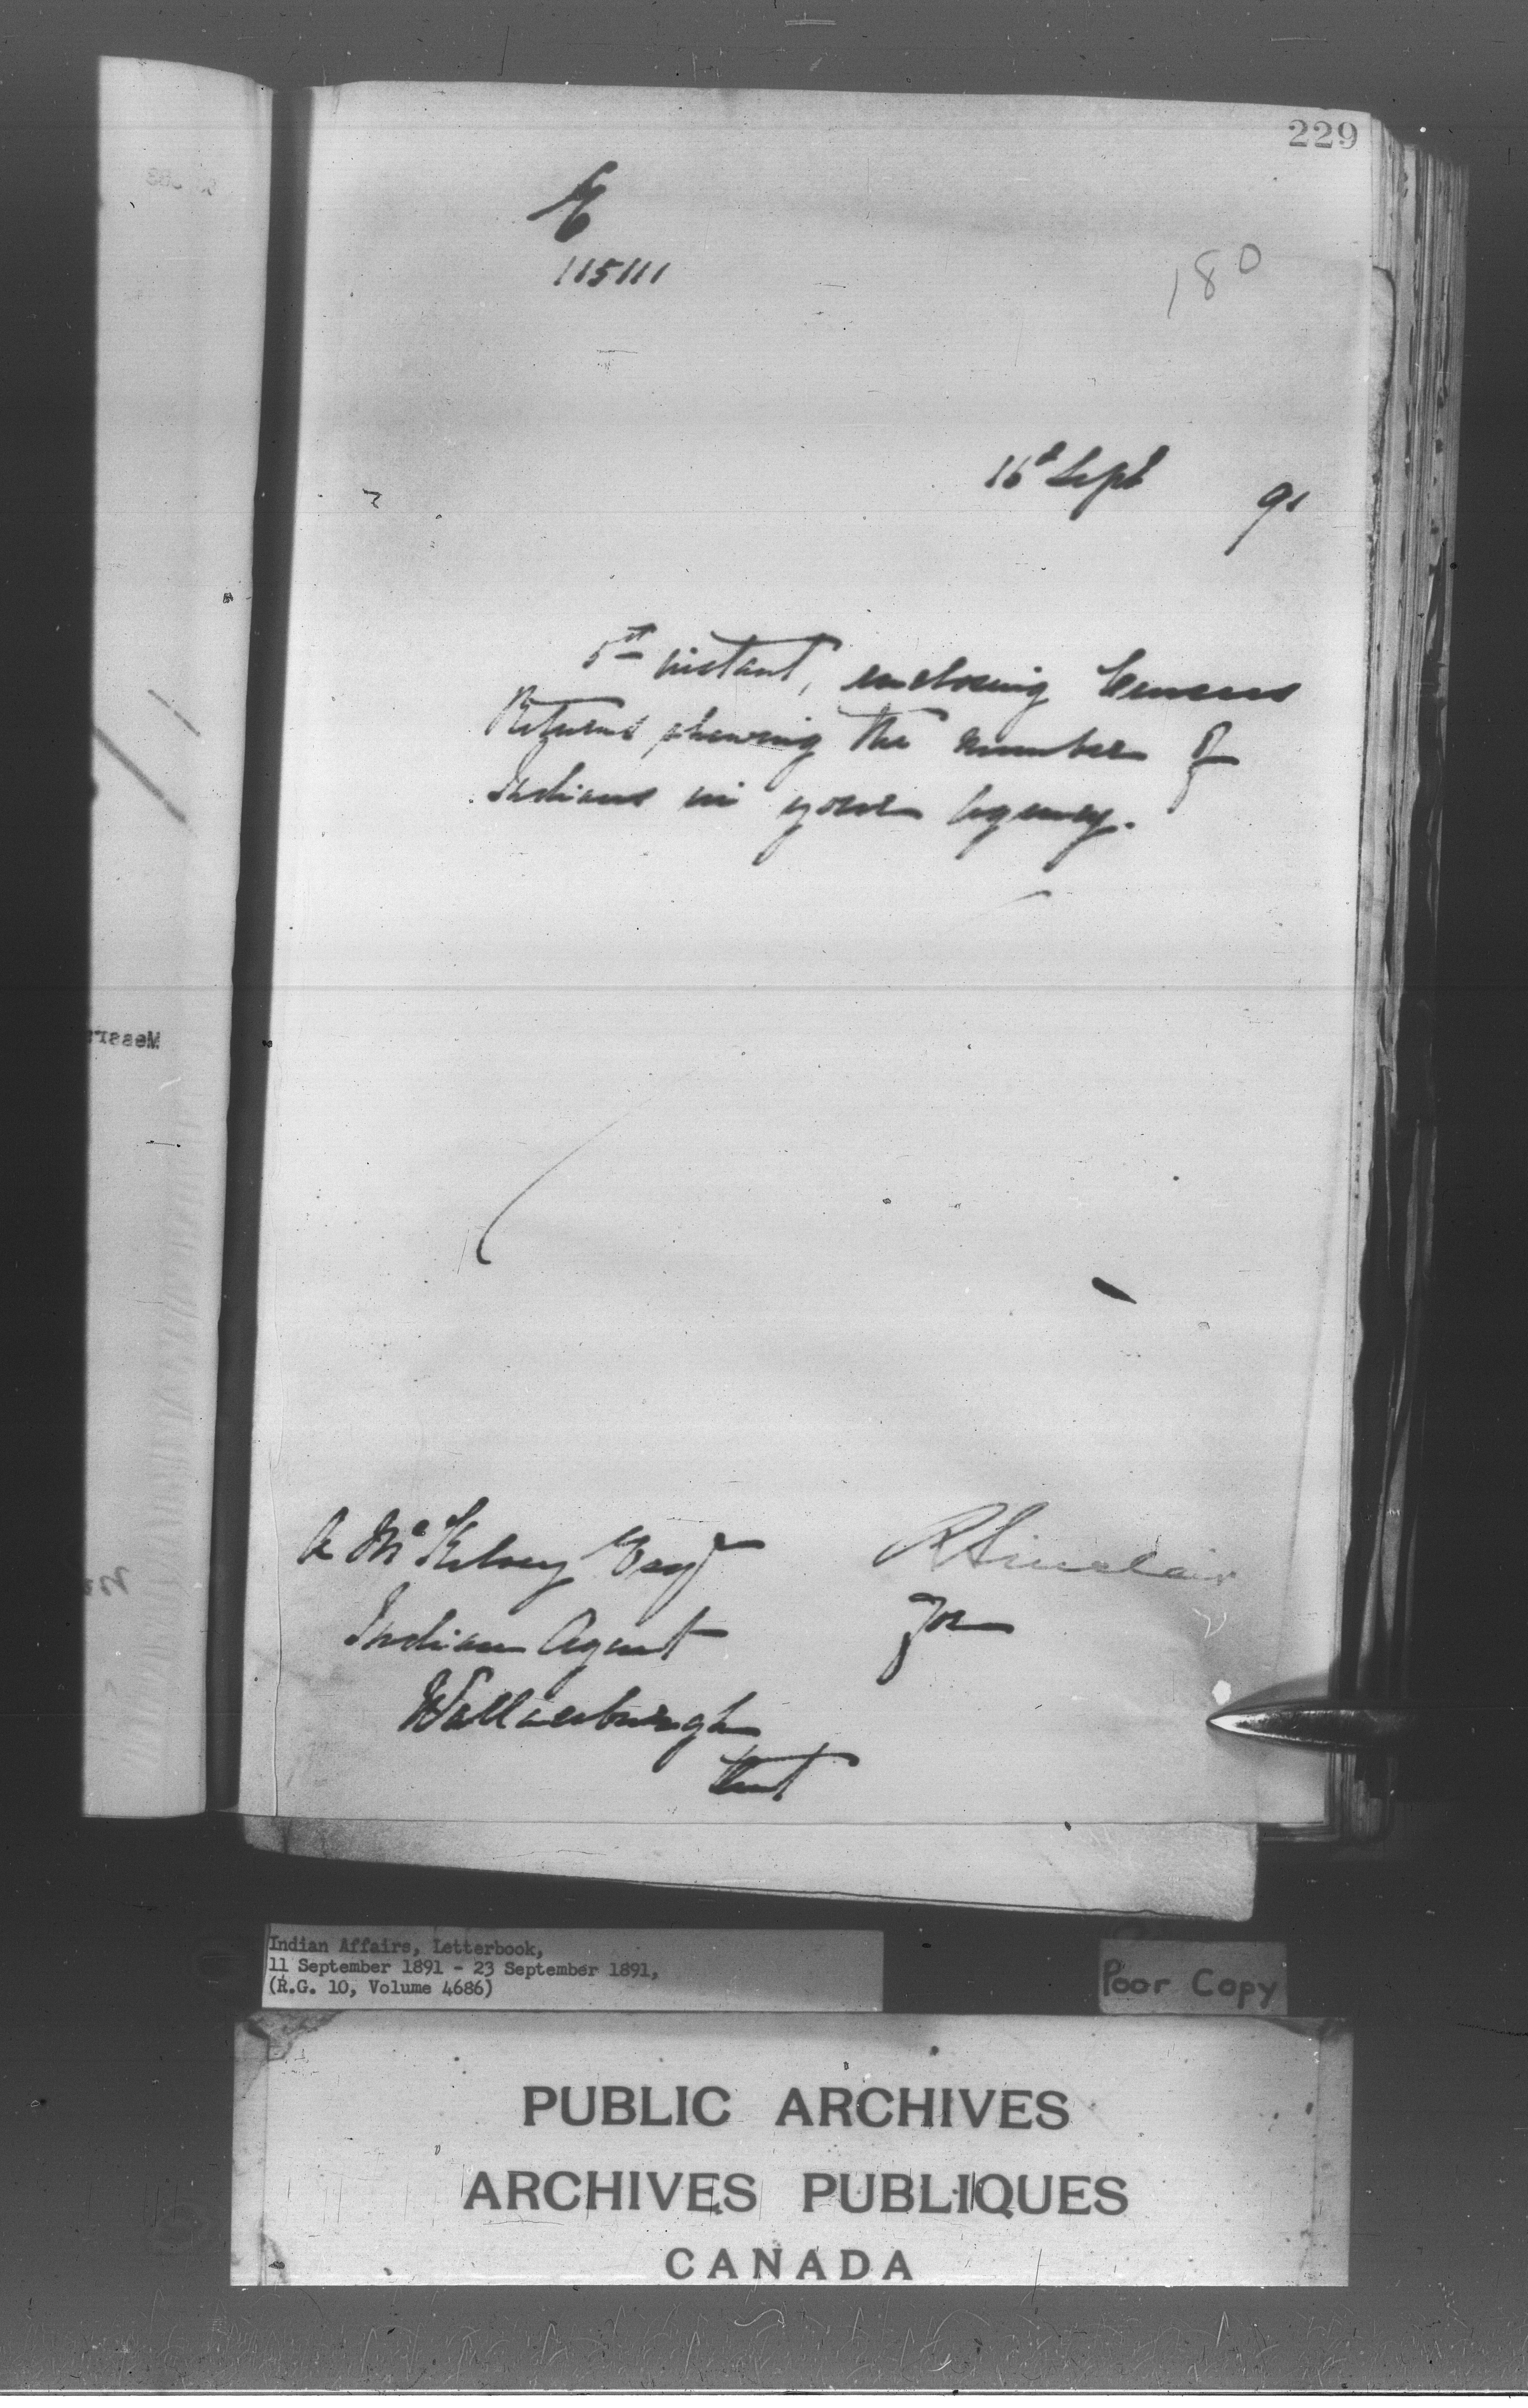 229
E
115111
180
16th Sept 91
5th instant, enclosing Census
Returns shewing the number of
Indians in your Agency.
A McKelvey Esqr
R Sinclair
Indian Agent
for
Wallaceburgh
Ont
Messrs
Indian Affairs, Letterbook,
11 September 1891 - 23 September 1891,
(R.G. 10, Volume 4686)
Poor Copy
PUBLIC ARCHIVES
ARCHIVES PUBLIQUES
CANADA